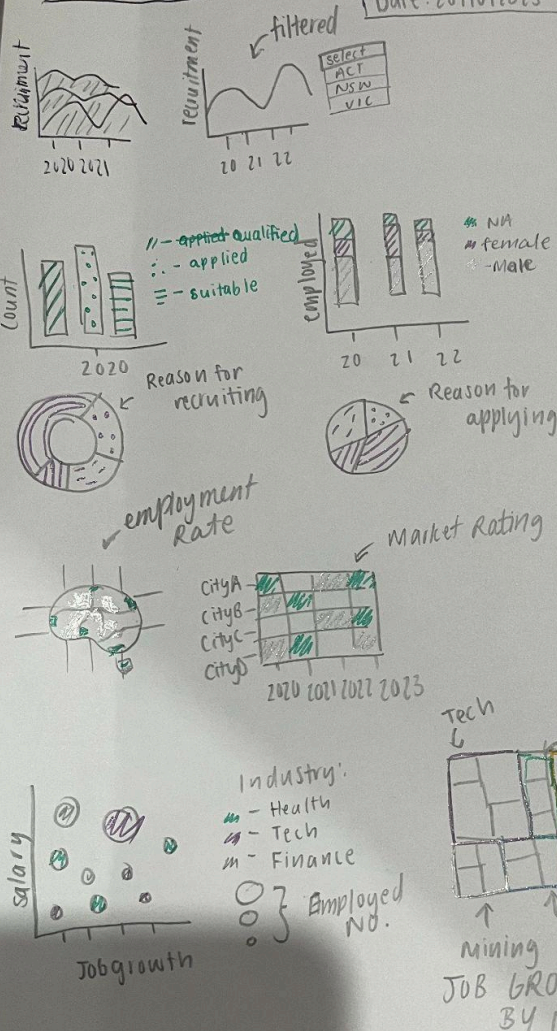 recruitment
2020 2021
recruitment
filtered
20 21 22
select
ACT
NSW
VIC
Count
2020
applied qualified
- applied
- suitable
employed
20 21 22
NA
female
- Male
Reason for
recruiting
Reason for
applying
employment
Rate
Market Rating
City A
City B
City C
City D
2020 2021 2022 2023
Tech
Salary
Job growth
Industry:
- Health
- Tech
- Finance
Employed
No.
Mining
JOB GRO
BY